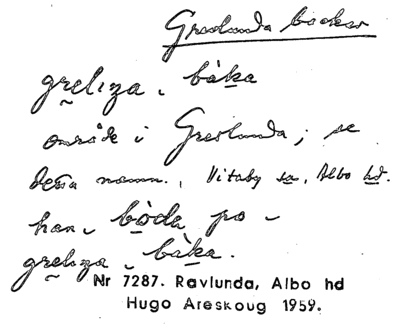 Grevlunda backar
grelıza ˛ bàka
område i Grevlunda; se
dessa namn., Vitaby sn, Albo hd.
han ˛ bòda po ˛
grelıza ˛ bàka.
Nr 7287. Ravlunda, Albo hd
Hugo Areskoug 1959.